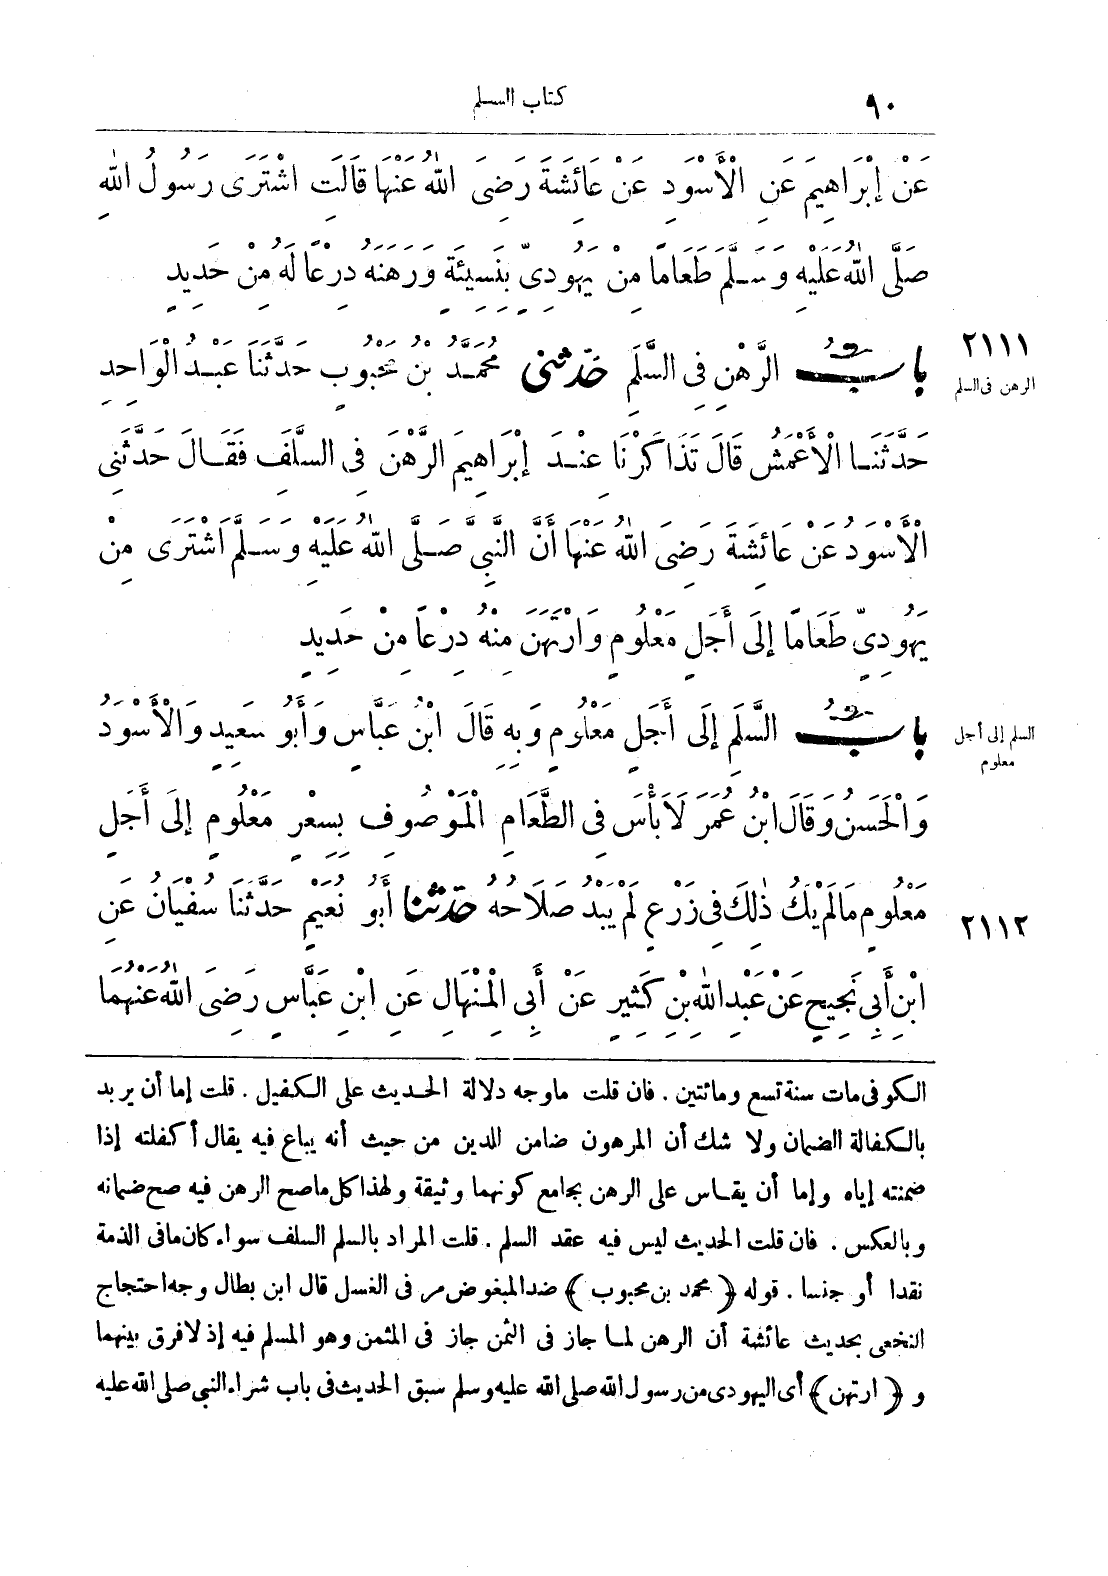 ٩٠ كتاب السلم
عَنْ إِبْرَاهِيمَ عَنِ الْأَسْوَدِ عَنْ عَائِشَةَ رَضِىَ اللّٰهُ عَنْهَا قَالَتِ اشْتَرَى رَسُولُ اللّٰهِ
صَلَّى اللّٰهُ عَلَيْهِ وَسَلَّمَ طَعَامًا مِنْ يَهُودِىٍّ بِنَسِيئَةٍ وَرَهَنَهُ دِرْعًا لَهُ مِنْ حَدِيدٍ
٢١١١ الرهن فى السلم
بَابُ الرَّهْنِ فِى السَّلَمِ حَدَّثَنِى مُحَمَّدُ بْنُ مَحْبُوبٍ حَدَّثَنَا عَبْدُ الْوَاحِدِ
حَدَّثَنَا الْأَعْمَشُ قَالَ تَذَاكَرْنَا عِنْدَ إِبْرَاهِيمَ الرَّهْنَ فِى السَّلَفِ فَقَالَ حَدَّثَنِى
الْأَسْوَدُ عَنْ عَائِشَةَ رَضِىَ اللّٰهُ عَنْهَا أَنَّ النَّبِىَّ صَلَّى اللّٰهُ عَلَيْهِ وَسَلَّمَ اشْتَرَى مِنْ
يَهُودِىٍّ طَعَامًا إِلَى أَجَلٍ مَعْلُومٍ وَارْتَهَنَ مِنْهُ دِرْعًا مِنْ حَدِيدٍ
السلم إلى أجل معلوم
بَابُ السَّلَمِ إِلَى أَجَلٍ مَعْلُومٍ وَبِهِ قَالَ ابْنُ عَبَّاسٍ وَأَبُو سَعِيدٍ وَالْأَسْوَدُ
وَالْحَسَنُ وَقَالَ ابْنُ عُمَرَ لَا بَأْسَ فِى الطَّعَامِ الْمَوْصُوفِ بِسِعْرٍ مَعْلُومٍ إِلَى أَجَلٍ
مَعْلُومٍ مَالَمْ يَكُ ذٰلِكَ فِى زَرْعٍ لَمْ يَبْدُ صَلَاحُهُ حَدَّثَنَا أَبُو نُعَيْمٍ حَدَّثَنَا سُفْيَانُ عَنِ
٢١١٢
ابْنِ أَبِى نَجِيحٍ عَنْ عَبْدِ اللّٰهِ بْنِ كَثِيرٍ عَنْ أَبِى الْمِنْهَالِ عَنِ ابْنِ عَبَّاسٍ رَضِىَ اللّٰهُ عَنْهُمَا
الكوفى مات سنة تسع ومائتين . فان قلت ماوجه دلالة الحديث على الكفيل . قلت إما أن يريد
بالكفالة الضمان ولا شك أن المرهون ضامن للدين من حيث أنه يباع فيه يقال أكفلته إذا
ضمنته إياه وإما أن يقاس على الرهن بجامع كونهما وثيقة ولهذا كل ماصح الرهن فيه صح ضمانه
وبالعكس . فان قلت الحديث ليس فيه عقد السلم . قلت المراد بالسلم السلف سواء كان مافى الذمة
نقدا أو جنسا . قوله ﴿محمد بن محبوب﴾ ضد المبغوض مر فى الغسل قال ابن بطال وجه احتجاج
النخعى بحديث عائشة أن الرهن لما جاز فى الثمن جاز فى المثمن وهو المسلم فيه إذ لافرق بينهما
و ﴿ارتهن﴾ أى اليهودى من رسول الله صلى الله عليه وسلم سبق الحديث فى باب شراء النبي صلى الله عليه